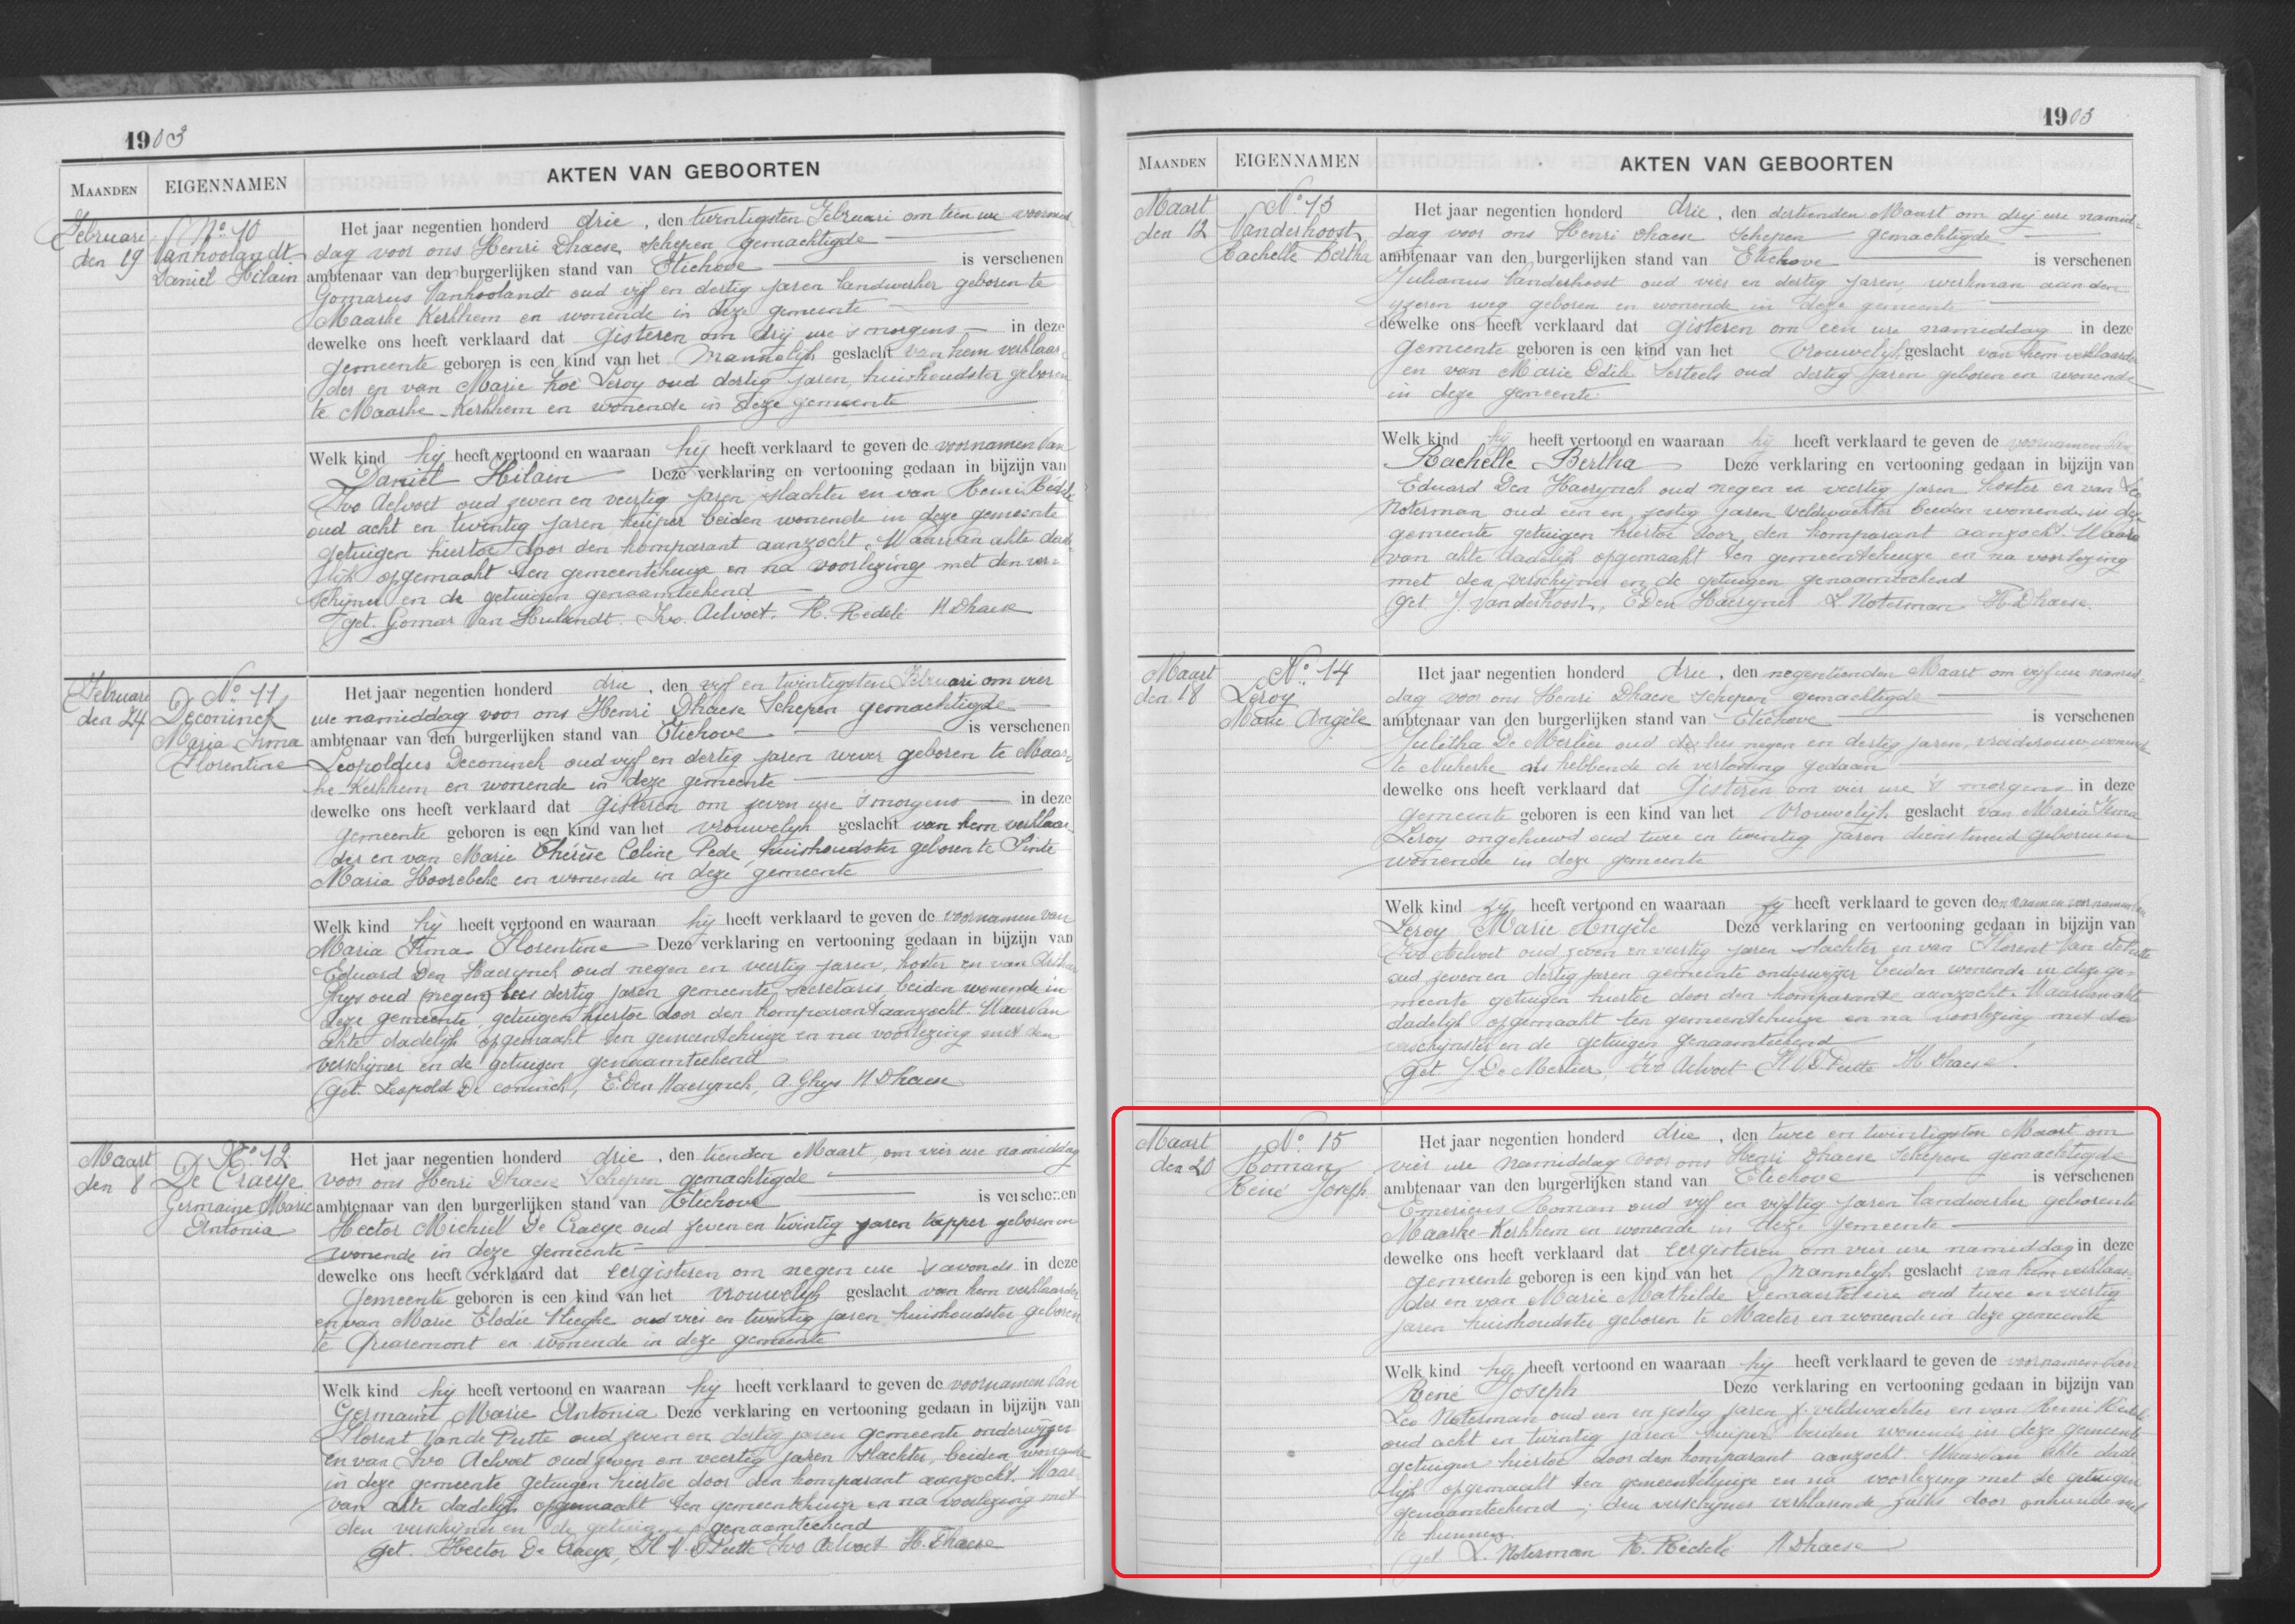 1903
MAANDEN
EIGENNAMEN
AKTEN VAN GEBOORTEN
Februari
den 19
No 10
Vanhoolandt
Daniël Hilain
Het jaar negentien honderd drie, den twintigsten Februari om tien ure voormid-
dag voor ons Henri Dhaese, Schepen gemachtigde
ambtenaar van den burgerlijken stand van Etichove is verschenen
Gomarus Vanhoolandt oud vijf en dertig jaren landwerker geboren te
Maarke Kerkhem en wonende in deze gemeente
dewelke ons heeft verklaard dat gisteren om drij ure 's morgens in deze
gemeente geboren is een kind van het Mannelijk geslacht van hem verklaar-
der en van Marie Zoé Leroy oud dertig jaren, huishoudster geboren
te Maarke-Kerkhem en wonende in deze gemeente
Welk kind hij heeft vertoond en waaraan hij heeft verklaard te geven de voornamen van
Daniël Hilain Deze verklaring en vertooning gedaan in bijzijn van
Ivo Aelvoet oud zeven en veertig jaren slachter en van Remi Redelé
oud acht en twintig jaren kuiper beiden wonende in deze gemeente
getuigen hiertoe door den komparant aanzocht. Waarvan akte dade-
lijk opgemaakt ten gemeentehuize en na voorlezing met den ver-
schijner en de getuigen genaamteekend
get. Gomar Van Hulandt. Ivo. Aelvoet. R. Redelé H Dhaese
Februari
den 24
No 11
Deconinck
Maria Irma
Florentine
Het jaar negentien honderd drie, den vijf en twintigsten Februari om vier
ure namiddag voor ons Henri Dhaese Schepen gemachtigde
ambtenaar van den burgerlijken stand van Etichove is verschenen
Leopoldus Deconinck oud vijf en dertig jaren wever geboren te Maar-
ke-Kerkhem en wonende in deze gemeente
dewelke ons heeft verklaard dat gisteren om zeven ure 's morgens in deze
gemeente geboren is een kind van het vrouwelijk geslacht van hem verklaar-
der en van Marie Thérèse Celine Pede, huishoudster geboren te Sinte
Maria Hoorebeke en wonende in deze gemeente
Welk kind hij heeft vertoond en waaraan hij heeft verklaard te geven de voornamen van
Maria Irma Florentine Deze verklaring en vertooning gedaan in bijzijn van
Eduard Den Haerynck oud negen en veertig jaren, koster en van Arthur
Ghys oud (negen) lees dertig jaren gemeente secretaris beiden wonende in
deze gemeente, getuigen hiertoe door den komparant aanzocht. Waarvan
akte dadelijk opgemaakt ten gemeentehuize en na voorlezing met den
verschijner en de getuigen genaamteekend
(get. Leopold De coninck, E. Den Haerynck, A. Ghys H Dhaese
Maart
den 8
No 12
De Craeye
Germaine Marie
Antonia
Het jaar negentien honderd drie, den tienden Maart, om vier ure namiddag
voor ons Henri Dhaese Schepen gemachtigde
ambtenaar van den burgerlijken stand van Etichove is verschenen
Hector Michiel De Craeye oud zeven en twintig jaren tapper geboren en
wonende in deze gemeente
dewelke ons heeft verklaard dat eergisteren om negen ure 's avonds in deze
gemeente geboren is een kind van het vrouwelijk geslacht van hem verklaarder
en van Marie Elodie Vlieghe oud vier en twintig jaren huishoudster geboren
te Quaremont en wonende in deze gemeente
Welk kind hij heeft vertoond en waaraan hij heeft verklaard te geven de voornamen van
Germaine Marie Antonia Deze verklaring en vertooning gedaan in bijzijn van
Florent Van de Putte oud zeven en dertig jaren gemeente onderwijzer
en van Ivo Aelvoet oud zeven en veertig jaren slachter, beiden wonende
in deze gemeente getuigen hiertoe door den komparant aanzocht. Waar-
van akte dadelijk opgemaakt ten gemeentehuize en na voorlezing met
den verschijner en de getuigen genaamteekend
get. Hector De Craeye, Fl. V. d Putte Ivo Aelvoet H. Dhaese
1903
MAANDEN
EIGENNAMEN
AKTEN VAN GEBOORTEN
Maart
den 12
No 13
Vanderhoost
Rachelle Bertha
Het jaar negentien honderd drie, den dertienden Maart om drij ure namid-
dag voor ons Henri Dhaese Schepen gemachtigde
ambtenaar van den burgerlijken stand van Etichove is verschenen
Julianus Vanderhoost oud vier en dertig jaren, werkman aan den
yzeren weg geboren en wonende in deze gemeente
dewelke ons heeft verklaard dat gisteren om een ure namiddag in deze
gemeente geboren is een kind van het vrouwelijk geslacht van hem verklaarder
en van Marie Odile Serteels oud dertig jaren geboren en wonende
in deze gemeente
Welk kind hij heeft vertoond en waaraan hij heeft verklaard te geven de voornamen van
Rachelle Bertha Deze verklaring en vertooning gedaan in bijzijn van
Eduard Den Haerynck oud negen en veertig jaren koster en van Leo
Noterman oud een en zestig jaren veldwachter beiden wonende in deze
gemeente getuigen hiertoe door den komparant aanzocht. Waar-
van akte dadelijk opgemaakt ten gemeentehuize en na voorlezing
met den verschijner en de getuigen genaamteekend
(get. J. Vanderhoost, E Den Haerynck L. Noterman H. Dhaese.
Maart
den 18
No 14
Leroy
Marie Angèle
Het jaar negentien honderd drie, den negentienden Maart om vijf ure namid-
dag voor ons Henri Dhaese Schepen gemachtigde
ambtenaar van den burgerlijken stand van Etichove is verschenen
Julitha De Merlier oud lees negen en dertig jaren, vroedvrouw wonende
te Nukerke als hebbende de verlossing gedaan
dewelke ons heeft verklaard dat Gisteren om vier ure 's morgens in deze
gemeente geboren is een kind van het Vrouwelijk geslacht van Maria Irma
Leroy ongehuwd oud twee en twintig jaren dienstmeid geboren en
wonende in deze gemeente
Welk kind zij heeft vertoond en waaraan zij heeft verklaard te geven den naam en voornamen van
Leroy Marie Angèle Deze verklaring en vertooning gedaan in bijzijn van
Ivo Aelvoet oud zeven en veertig jaren slachter en van Florent Van de Putte
oud zeven en dertig jaren gemeente onderwijzer beiden wonende in deze ge-
meente getuigen hiertoe door den komparante aanzocht. Waarvan akte
dadelijk opgemaakt ten gemeentehuize en na voorlezing met de
verschijnster en de getuigen genaamteekend
(get. J. De Merlier, Ivo Aelvoet Fl V d Putte H. Dhaese.
Maart
den 20
No 15
Homan
René Joseph
Het jaar negentien honderd drie, den twee en twintigsten Maart om
vier ure namiddag voor ons Henri Dhaese Schepen gemachtigde
ambtenaar van den burgerlijken stand van Etichove is verschenen
Emericus Homan oud vijf en vijftig jaren landwerker geboren te
Maarke-Kerkhem en wonende in deze gemeente
dewelke ons heeft verklaard dat eergisteren om vier ure namiddag in deze
gemeente geboren is een kind van het Mannelijk geslacht van hem verklaar-
der en van Marie Mathilde Demaerteleire oud twee en veertig
jaren huishoudster geboren te Maeter en wonende in deze gemeente
Welk kind hij heeft vertoond en waaraan hij heeft verklaard te geven de voornamen van
René Joseph Deze verklaring en vertooning gedaan in bijzijn van
Leo Noterman oud een en zestig jaren veldwachter en van Remi Redelé
oud acht en twintig jaren kuiper beiden wonende in deze gemeente
getuigen hiertoe door den komparant aanzocht. Waarvan akte dade-
lijk opgemaakt ten gemeentehuize en na voorlezing met de getuigen
genaamteekend; den verschijner verklarende zulks door onkunde niet
te kunnen.
(get. L. Noterman R. Redelé H Dhaese